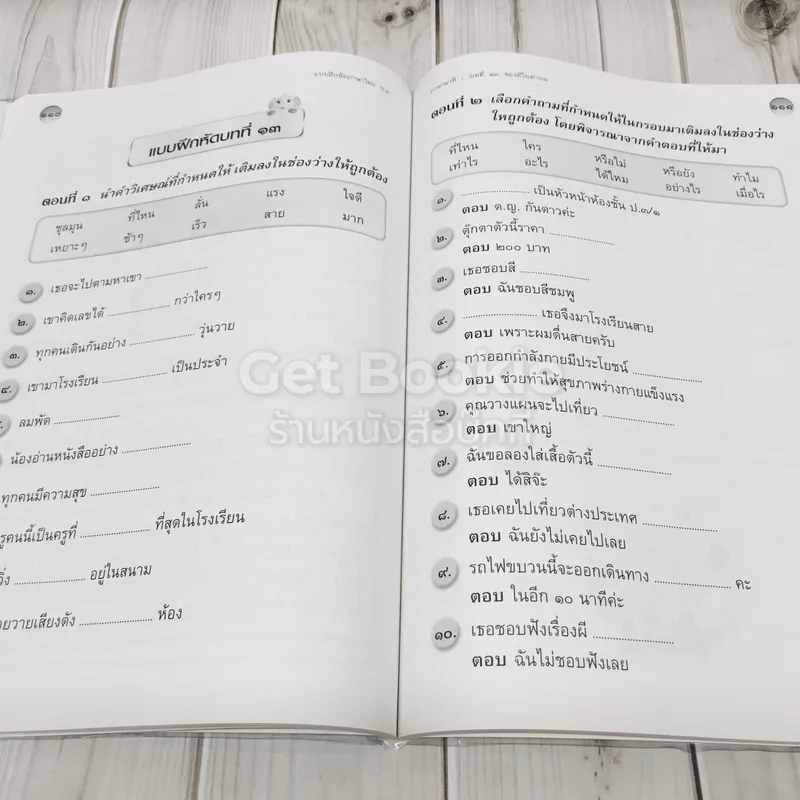 แบบฝึกหัดภาษาไทย ป.๓
๑๑๐
แบบฝึกหัดบทที่ ๑๓
ตอนที่ ๑ นำคำวิเศษณ์ที่กำหนดให้ เติมลงในช่องว่างให้ถูกต้อง
ชุลมุน ที่ไหน ลั่น แรง ใจดี
เหยาะๆ ช้าๆ เร็ว สาย มาก
๑. เธอจะไปตามหาเขา ....................
๒. เขาคิดเลขได้ .................... กว่าใครๆ
๓. ทุกคนเดินกันอย่าง .................... วุ่นวาย
๔. เขามาโรงเรียน .................... เป็นประจำ
ลมพัด ....................
น้องอ่านหนังสืออย่าง ....................
ทุกคนมีความสุข ....................
รูคนนี้เป็นครูที่ .................... ที่สุดในโรงเรียน
วิ่ง .................... อยู่ในสนาม
ยวายเสียงดัง .................... ห้อง
๑๑๑
ตอนที่ ๒ เลือกคำถามที่กำหนดให้ในกรอบมาเติมลงในช่องว่าง
ให้ถูกต้อง โดยพิจารณาจากคำตอบที่ให้มา
ที่ไหน ใคร หรือไม่ หรือยัง ทำไม
เท่าไร อะไร ได้ไหม อย่างไร เมื่อไร
๑. .................... เป็นหัวหน้าห้องชั้น ป.๓/๑
ตอบ ด.ญ. กันดาวค่ะ
๒. ตุ๊กตาตัวนี้ราคา ....................
ตอบ ๒๐๐ บาท
๓. เธอชอบสี ....................
ตอบ ฉันชอบสีชมพู
๔. .................... เธอจึงมาโรงเรียนสาย
ตอบ เพราะผมตื่นสายครับ
๕. การออกกำลังกายมีประโยชน์ ....................
ตอบ ช่วยทำให้สุขภาพร่างกายแข็งแรง
๖. คุณวางแผนจะไปเที่ยว ....................
ตอบ เขาใหญ่
๗. ฉันขอลองใส่เสื้อตัวนี้ ....................
ตอบ ได้สิจ๊ะ
๘. เธอเคยไปเที่ยวต่างประเทศ ....................
ตอบ ฉันยังไม่เคยไปเลย
๙. รถไฟขบวนนี้จะออกเดินทาง .................... คะ
ตอบ ในอีก ๑๐ นาทีค่ะ
๑๐. เธอชอบฟังเรื่องผี ....................
ตอบ ฉันไม่ชอบฟังเลย
Get Bookie
ร้านหนังสือบุ๊คกี้